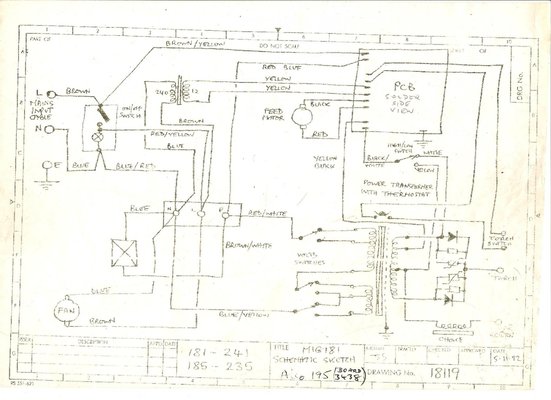 BROWN/YELLOW
DO NOT SCALE
RED BLUE
DRG. No.
L
BROWN
MAINS
INPUT
CABLE
ON/OFF
SWITCH
240
12
YELLOW
YELLOW
PCB
SOLDER
SIDE
VIEW
BLACK
FEED
MOTOR
RED
BROWN
N
RED/YELLOW
BLUE
BLUE
E
YELLOW
BLACK
BLACK/
WHITE
WHITE
YELLOW
POWER TRANSFORMER
WITH THERMOSTAT
BLUE
N
L
E
RED/WHITE
BROWN/WHITE
VOLTS
SWITCHES
TORCH
SWITCH
TORCH
BLUE
FAN
BROWN
BLUE/YELLOW
CHOKE
ISSUE
DESCRIPTION
DATE
181 - 241
185 - 235
TITLE MIG 181
SCHEMATIC SKETCH
Also 195 (BOARD 3438)
CHECKED
APPROVED
DATE
DRAWING No. 18119